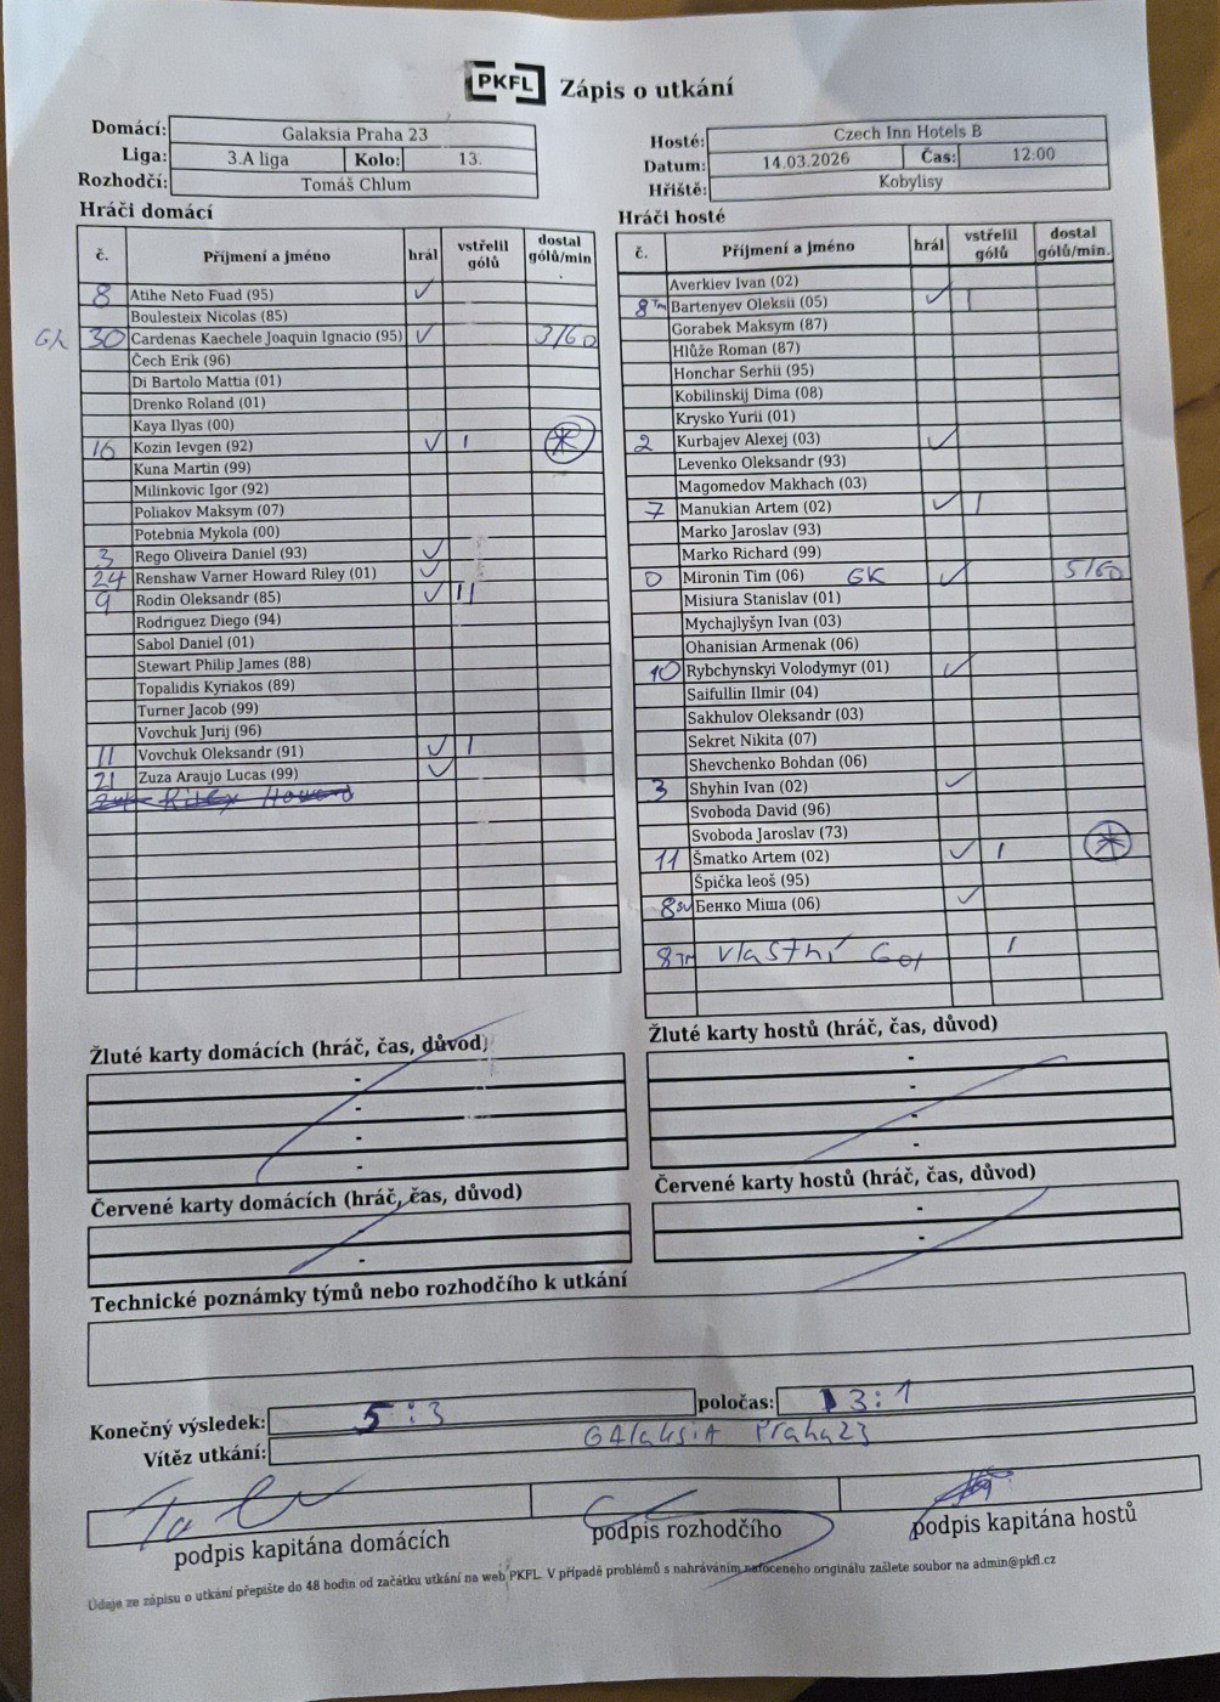 PKFL Zápis o utkání
Domácí: Galaksia Praha 23
Liga: 3.A liga Kolo: 13.
Rozhodčí: Tomáš Chlum
Hosté: Czech Inn Hotels B
Datum: 14.03.2026 Čas: 12:00
Hřiště: Kobylisy
Hráči domácí
č. Příjmení a jméno hrál vstřelil gólů dostal gólů/min.
8 Atihe Neto Fuad (95) ✓
Boulesteix Nicolas (85)
Gk 30 Cardenas Kaechele Joaquin Ignacio (95) ✓ 3/60
Čech Erik (96)
Di Bartolo Mattia (01)
Drenko Roland (01)
Kaya Ilyas (00)
16 Kozin Ievgen (92) ✓ I *
Kuna Martin (99)
Milinkovic Igor (92)
Poliakov Maksym (07)
Potebnia Mykola (00)
3 Rego Oliveira Daniel (93) ✓
24 Renshaw Varner Howard Riley (01) ✓
9 Rodin Oleksandr (85) ✓ II
Rodriguez Diego (94)
Sabol Daniel (01)
Stewart Philip James (88)
Topalidis Kyriakos (89)
Turner Jacob (99)
Vovchuk Jurij (96)
11 Vovchuk Oleksandr (91) ✓ I
21 Zuza Araujo Lucas (99) ✓
Hráči hosté
č. Příjmení a jméno hrál vstřelil gólů dostal gólů/min.
Averkiev Ivan (02)
8TM Bartenyev Oleksii (05) ✓ I
Gorabek Maksym (87)
Hlůže Roman (87)
Honchar Serhii (95)
Kobilinskij Dima (08)
Krysko Yurii (01)
2 Kurbajev Alexej (03) ✓
Levenko Oleksandr (93)
Magomedov Makhach (03)
7 Manukian Artem (02) ✓ I
Marko Jaroslav (93)
Marko Richard (99)
0 Mironin Tim (06) GK ✓ 5/60
Misiura Stanislav (01)
Mychajlyšyn Ivan (03)
Ohanisian Armenak (06)
10 Rybchynskyi Volodymyr (01) ✓
Saifullin Ilmir (04)
Sakhulov Oleksandr (03)
Sekret Nikita (07)
Shevchenko Bohdan (06)
3 Shyhin Ivan (02) ✓
Svoboda David (96)
Svoboda Jaroslav (73)
11 Šmatko Artem (02) ✓ I *
Špička leoš (95)
8 Бенко Міша (06) ✓
8TM vlastní Gol I
Žluté karty domácích (hráč, čas, důvod)
-
-
-
-
Žluté karty hostů (hráč, čas, důvod)
-
-
-
-
Červené karty domácích (hráč, čas, důvod)
-
-
Červené karty hostů (hráč, čas, důvod)
-
-
Technické poznámky týmů nebo rozhodčího k utkání
Konečný výsledek: 5:3 poločas: 3:1
Vítěz utkání: GAlaksiA Praha23
podpis kapitána domácích
podpis rozhodčího
podpis kapitána hostů
Údaje ze zápisu o utkání přepište do 48 hodin od začátku utkání na web PKFL. V případě problémů s nahráváním nafoceného originálu zašlete soubor na admin@pkfl.cz